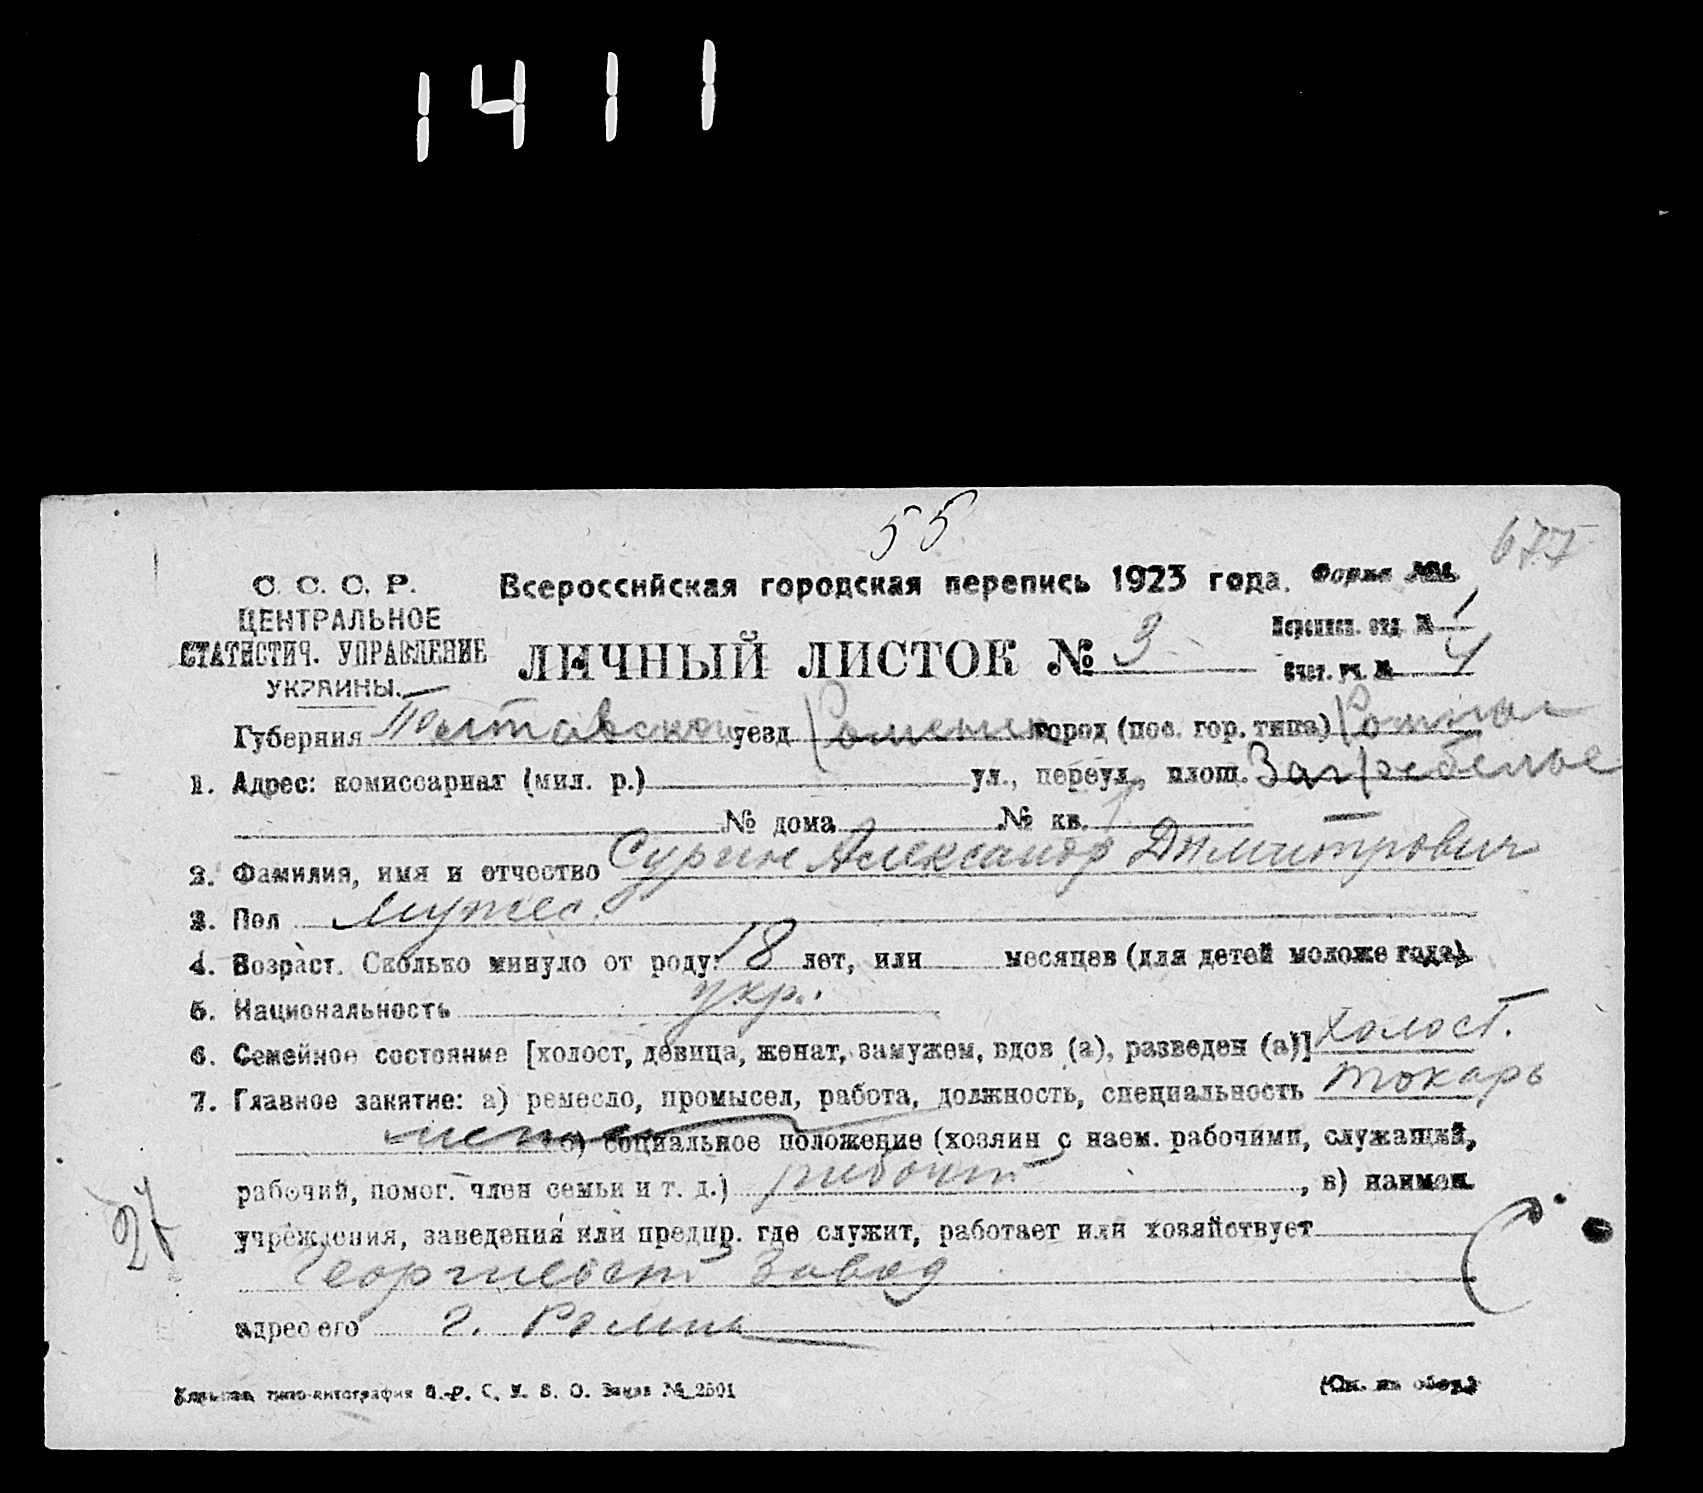 1411
55
677
С. С. С. Р.
ЦЕНТРАЛЬНОЕ
СТАТИСТИЧ. УПРАВЛЕНИЕ
УКРАИНЫ.
Всероссийская городская перепись 1923 года. Форма №1.
ЛИЧНЫЙ ЛИСТОК № 3
Переписн. отд. № 1
Счет. уч. № 4
Губерния Полтавская уезд Роменск город (пос. гор. типа) Ромны
1. Адрес: комиссариат (мил. р.) ул., переул., площ. Загребелье
№ дома № кв.
2. Фамилия, имя и отчество Сургин Александр Дмитрович
3. Пол мужес.
4. Возраст. Сколько минуло от роду: 18 лет, или месяцев (для детей моложе года).
5. Национальность укр.
6. Семейное состояние [холост, девица, женат, замужем, вдов (а), разведен (а)] холост.
7. Главное занятие: а) ремесло, промысел, работа, должность, специальность токарь
б) социальное положение (хозяин с наем. рабочими, служащий,
рабочий, помог. член семьи и т. д.) , в) наимен.
27
учреждения, заведения или предпр. где служит, работает или хозяйствует
Завод
адрес его г. Ромны
типо-литография № 2501
(См. на обор.)